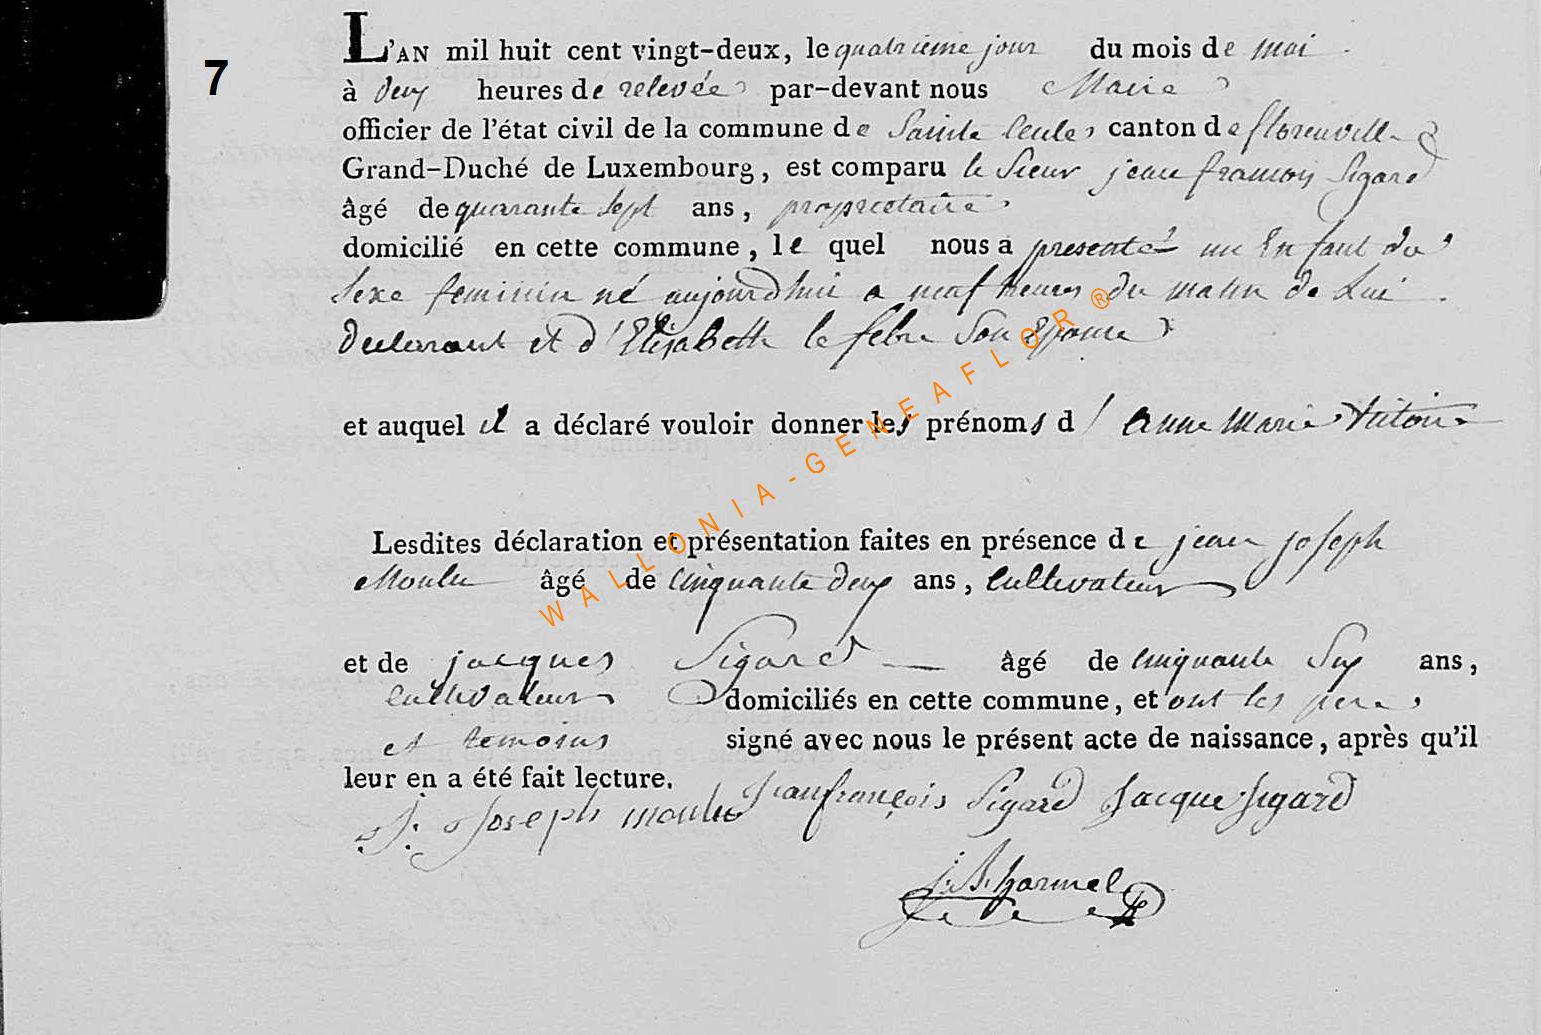 7
L'AN mil huit cent vingt-deux, le quatrieme jour du mois de mai
à deux heures de relevée par-devant nous Maire
officier de l'état civil de la commune de Sainte Cecile canton de florenville
Grand-Duché de Luxembourg, est comparu le Sieur jean françois Sigard
âgé de quarante sept ans, propriétaire
domicilié en cette commune, le quel nous a presenté un Enfant du
Sexe feminin né aujourd'hui a neuf heures du matin de Lui
Declarant et d'Elisabeth le febre Son Epouse
et auquel il a déclaré vouloir donner les prénoms d' anne Marie
Lesdites déclaration et présentation faites en présence de jean joseph
Moulu âgé de cinquante deux ans, Cultivateur
et de jacques Sigard âgé de cinquante Six ans,
cultivateur domiciliés en cette commune, et ont les pere
et temoins signé avec nous le présent acte de naissance, après qu'il
leur en a été fait lecture.
J. Joseph moulu Jean françois Sigard Jacque Sigard
J. B. harmel
WALLONIA-GENEAFLOR®